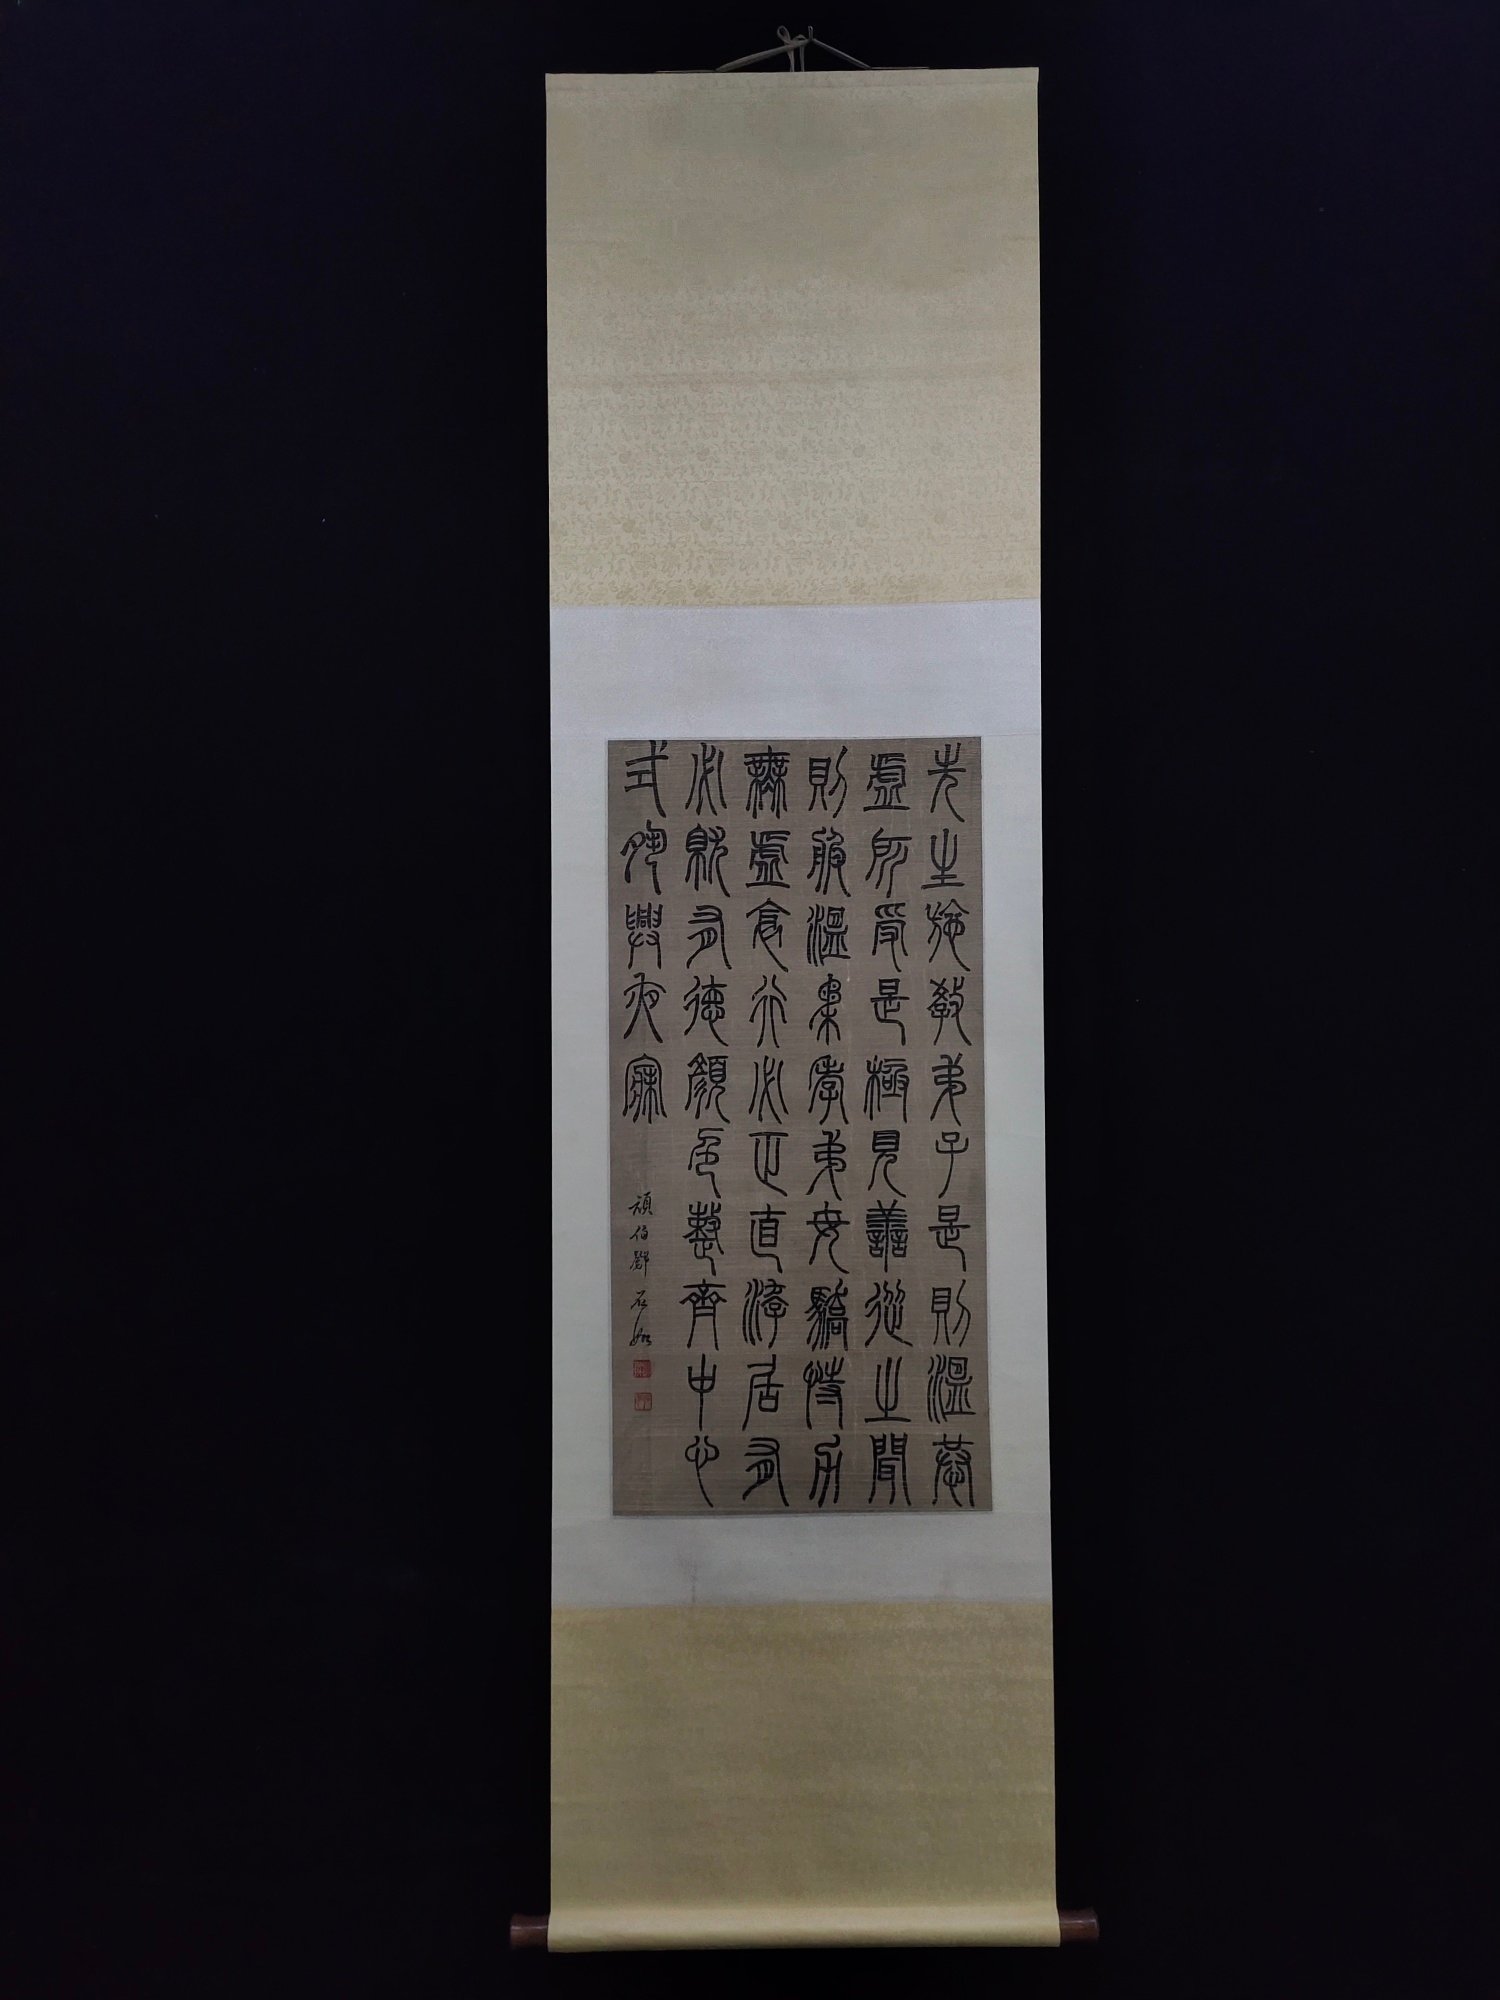 先生施教弟子是則溫恭
虛所受是極見善從之聞
則服溫柔孝弟毋驕恃力
無虛意行必正直游居有
必就有德顏色整齊中心
式夙興夜寐
頑伯鄧石如